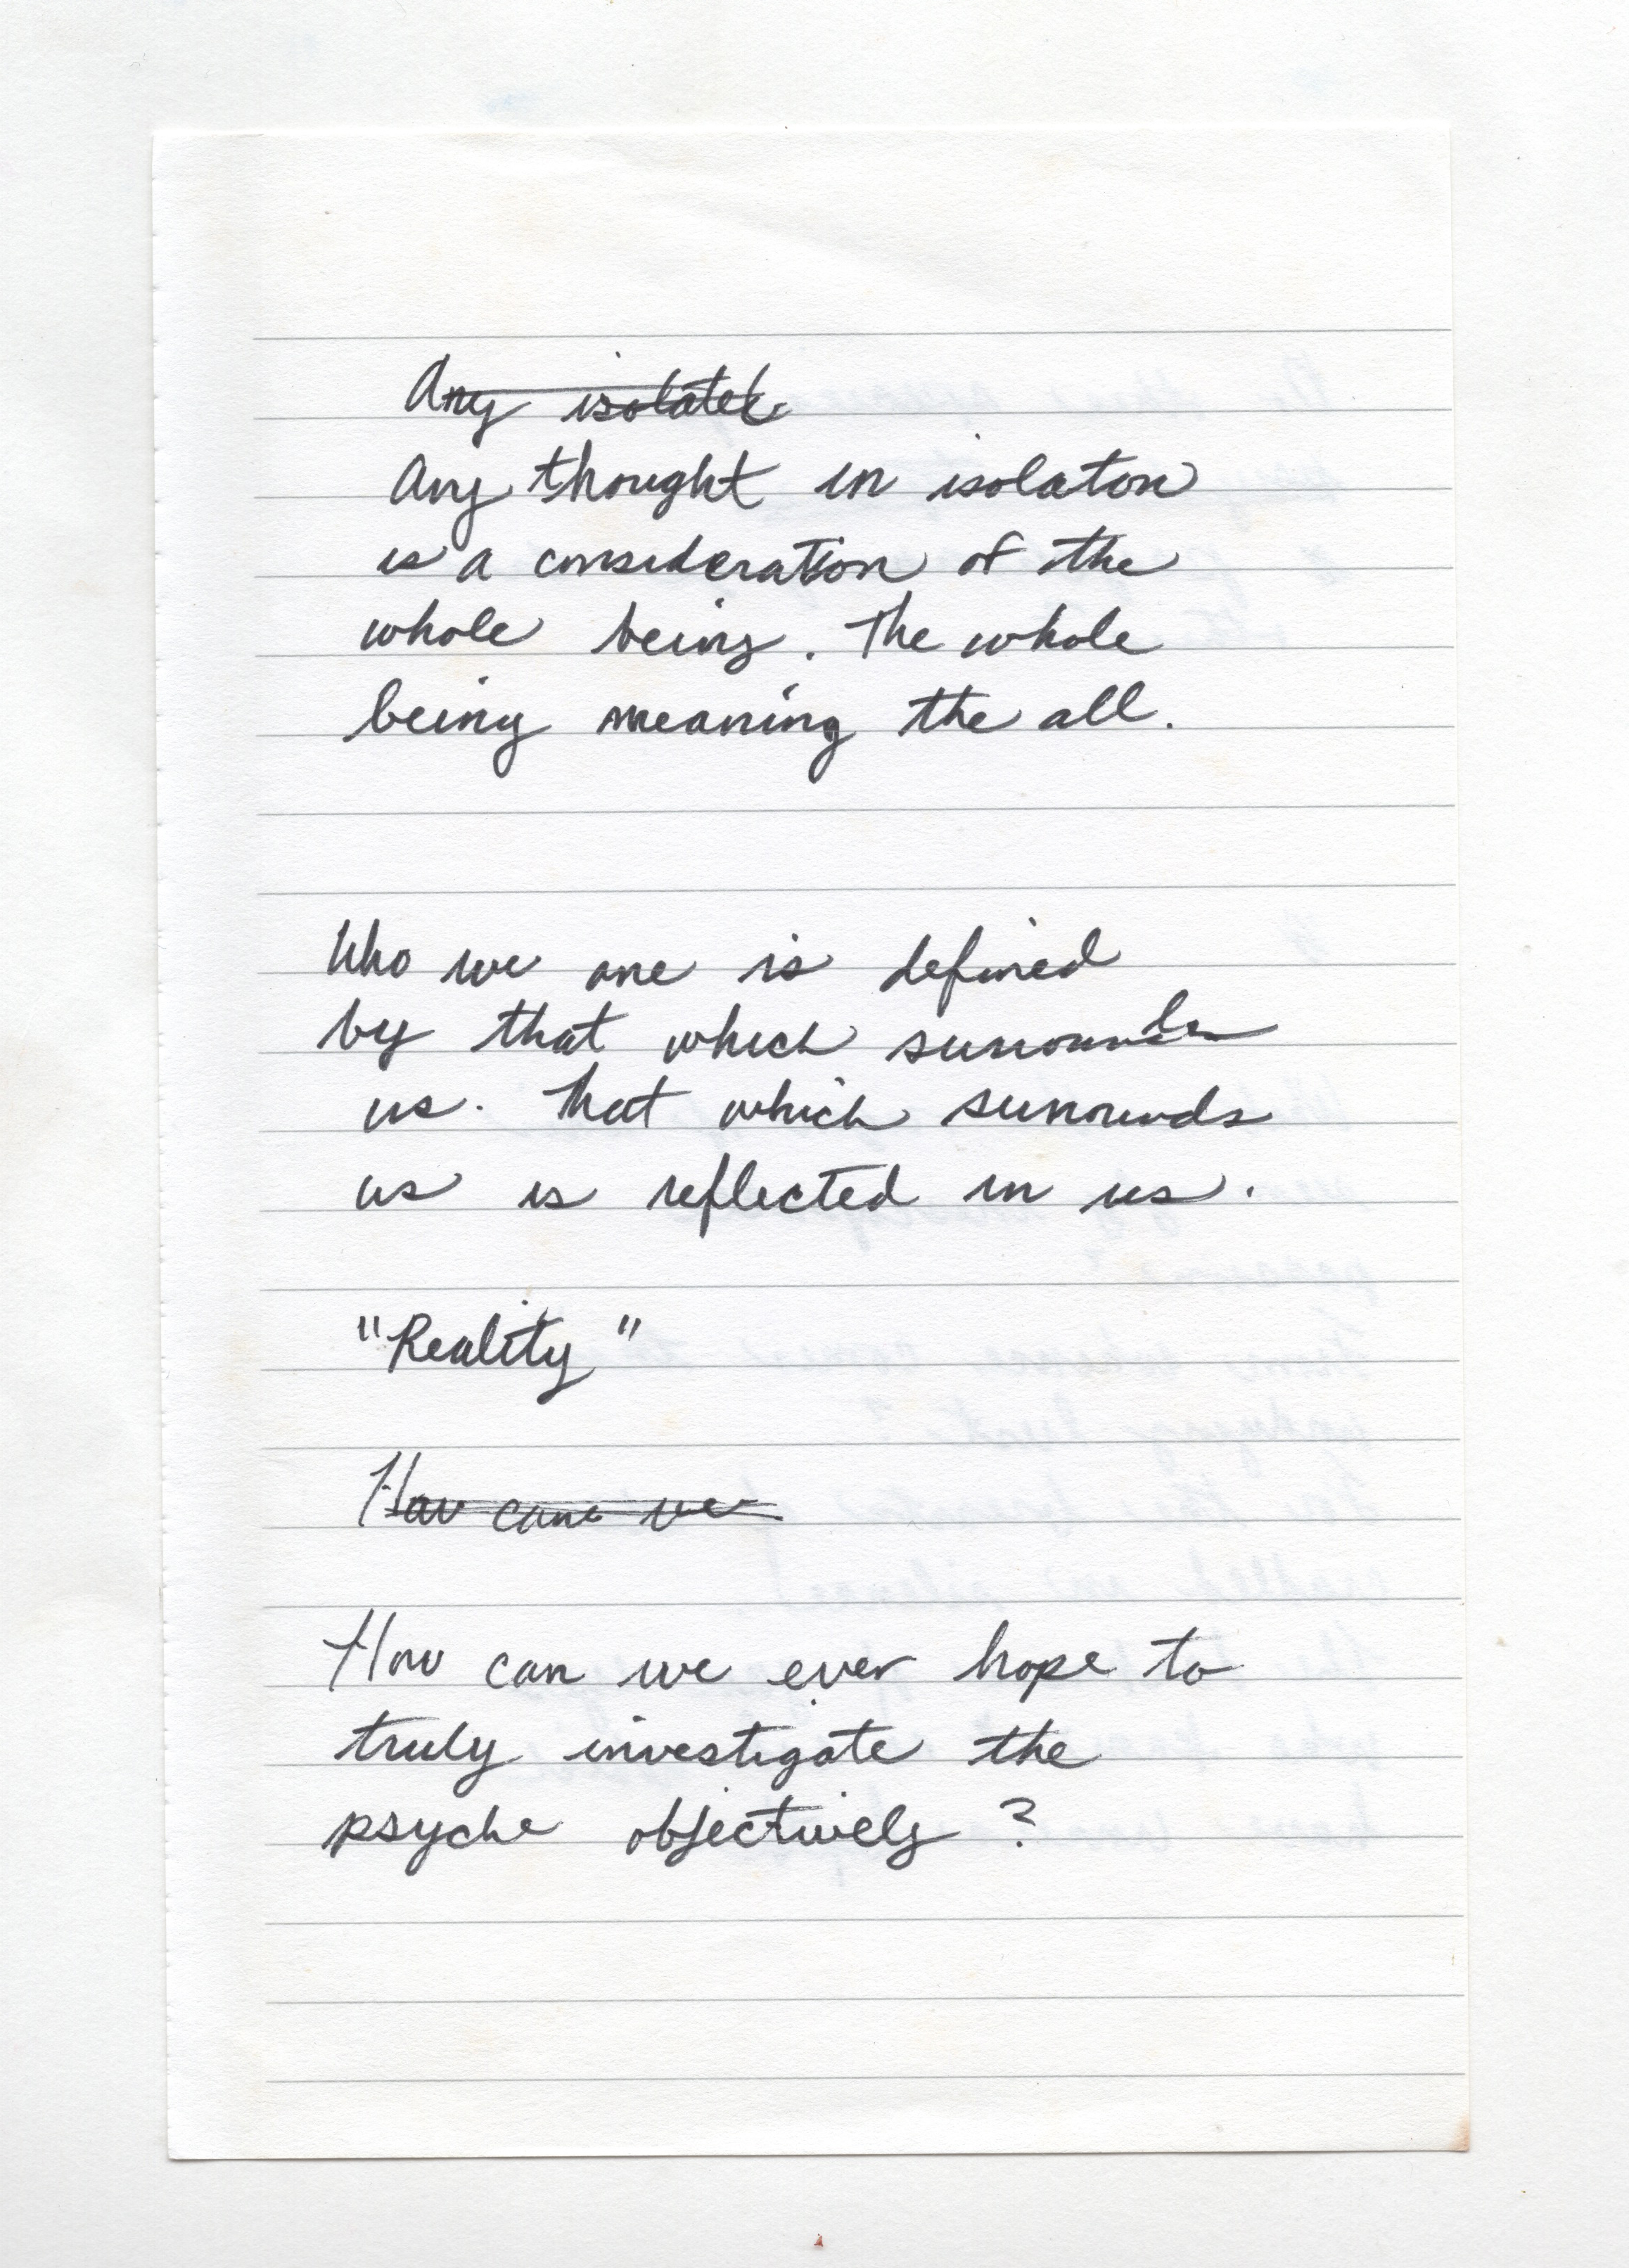 Any isolated
Any thought in isolaton
is a consideration of the
whole being. The whole
being meaning the all.
Who we are is defined
by that which surrounds
us. That which surrounds
us is reflected in us.
"Reality"
How can we
How can we ever hope to
truly investigate the
psyche objectively?